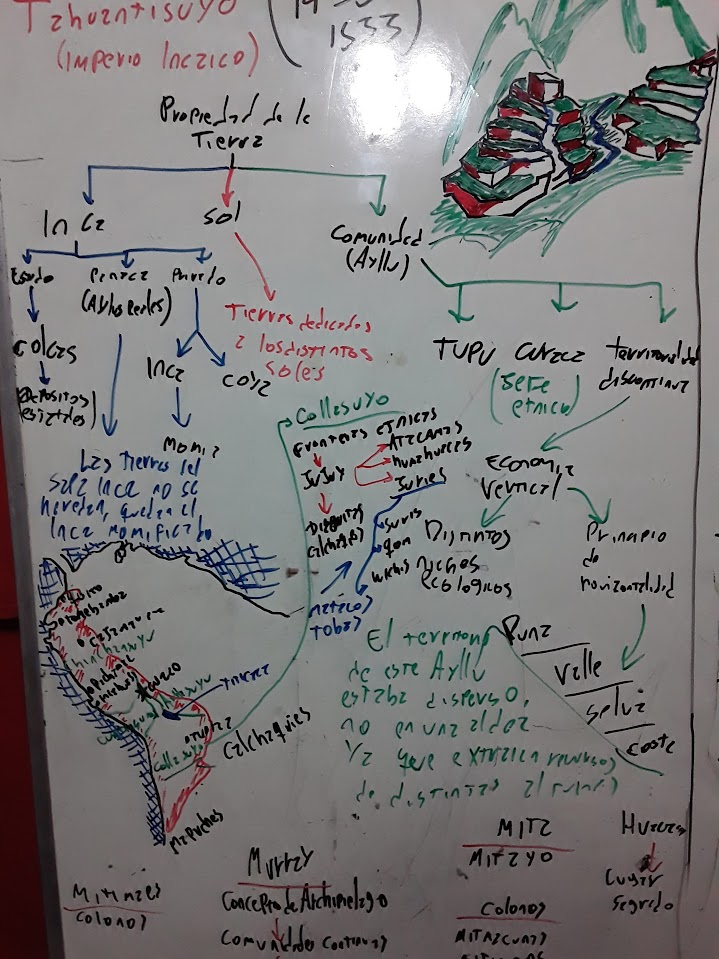 Tahuantisuyo
(Imperio Incaico)
1533
Propiedad de la
Tierra
Inca
Sol
Comunidad
(Ayllu)
Estado
Panaca
(Ayllus Reales)
Privado
Colcas
(Depositos
estatales)
Inca
Coya
Momia
Tierras dedicadas
a los distintos
soles
Tupu
Curaca
(Jefe
etnico)
territorialidad
discontinua
Las tierras del
Sapa Inca no se
heredan, quedan el
Inca momificado
Collasuyo
Fronteras etnicas
Jujuy
Atacamas
Humahuacas
Juries
Diaguitas
Calchaquies
Juris
Qom
Wichis
Matacos
Tobas
Economia
Vertical
Distintos
nichos
Ecologicos
Principio
de
horizontalidad
Puna
Valle
Selva
Costa
El territorio
de este Ayllu
estaba disperso,
no en una aldea
ya que extraian recursos
de distintas alturas
Quito
Cajamarca
Cuzco
Collasuyo
Calchaquies
Mapuches
Mitimaes
Colonos
Murray
Concepto de Archipielago
Comunidades Continuas
Mita
Mitayo
Colonos
Huacas
Lugar
Sagrado